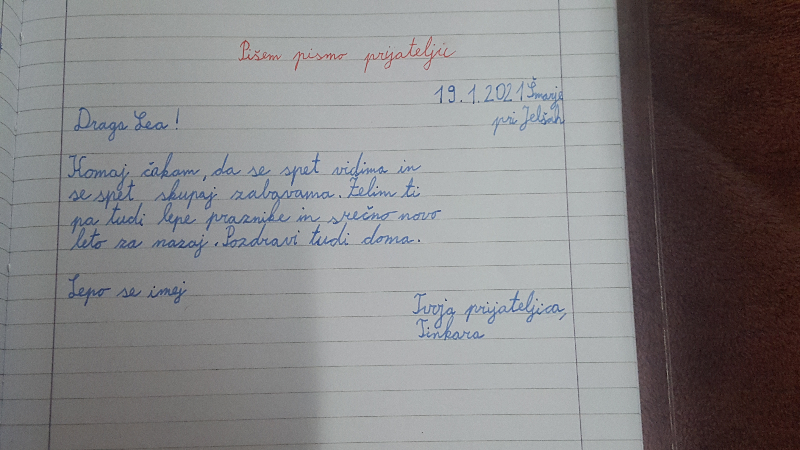 Pišem pismo prijateljici
19.1.2021 Šmarje
pri Jelšah
Draga Lea!
Komaj čakam, da se spet vidima in
se spet skupaj zabavama. Želim ti
pa tudi lepe praznike in srečno novo
leto za nazaj. Pozdravi tudi doma.
Lepo se imej
Tvoja prijateljica,
Tinkara